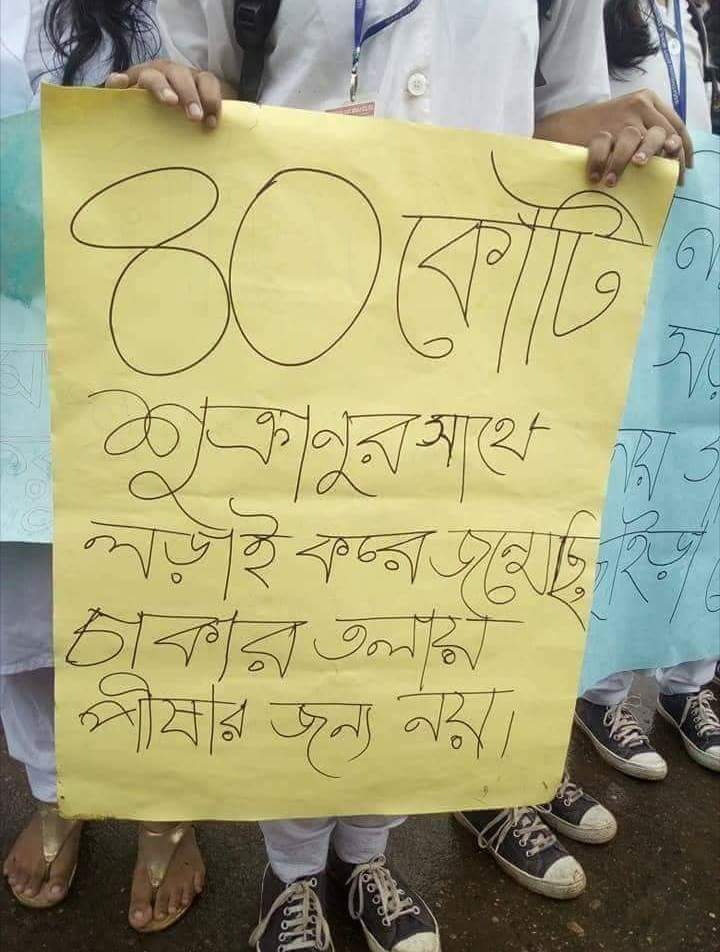 ৪০ কোটি
শুক্রানুর সাথে
লড়াই করে জন্মেছি
চাকার তলায়
পীষার জন্য নয়।